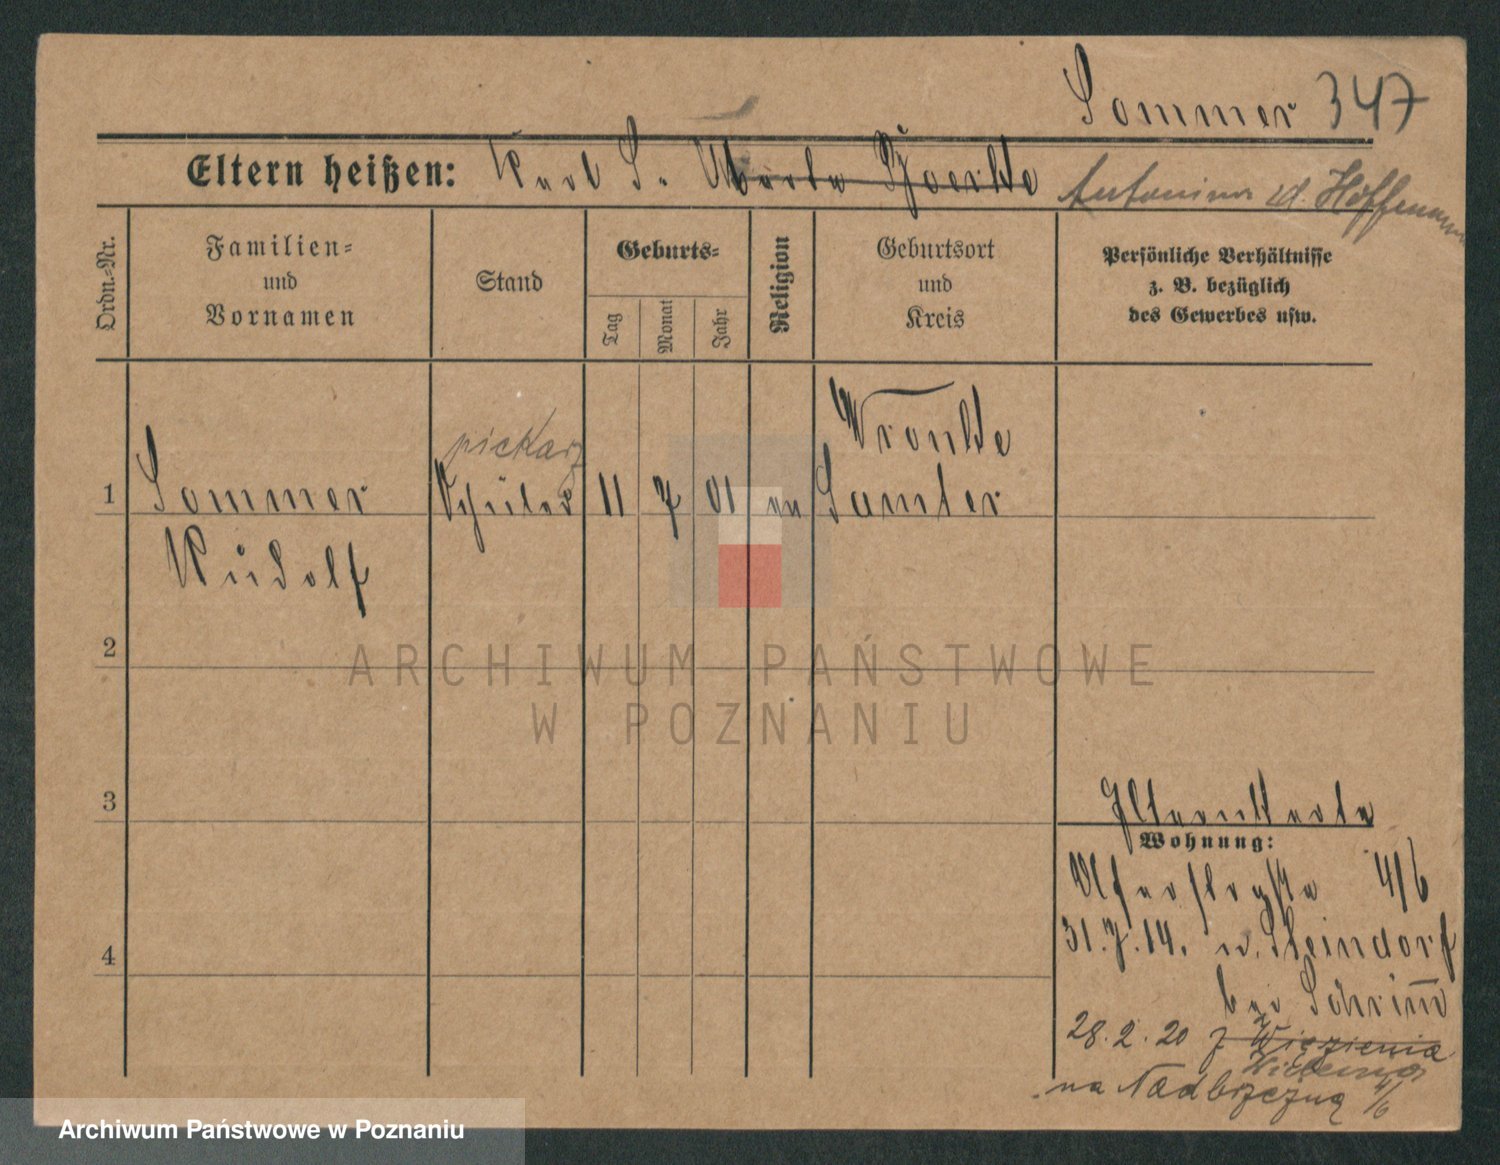 Sommer 347
Eltern heißen: Karl S. Antonina d. Hoffmann
Ordn.-Nr.
Familien- und Vornamen
Stand
Geburts-
Tag
Monat
Jahr
Religion
Geburtsort und Kreis
Persönliche Verhältnisse
z. B. bezüglich
des Gewerbes usw.
piekarz
Wronke
1 Sommer Schüler 11 7 01 Samter
Rudolf
2
ARCHIWUM PAŃSTWOWE
W POZNANIU
3
Elternkarte
Wohnung:
4/6
31.7.14. n. Steindorf
4
bei Schrimm
28.2.20 z Więzienia
na Nadbrzeżną 4/6
Archiwum Państwowe w Poznaniu